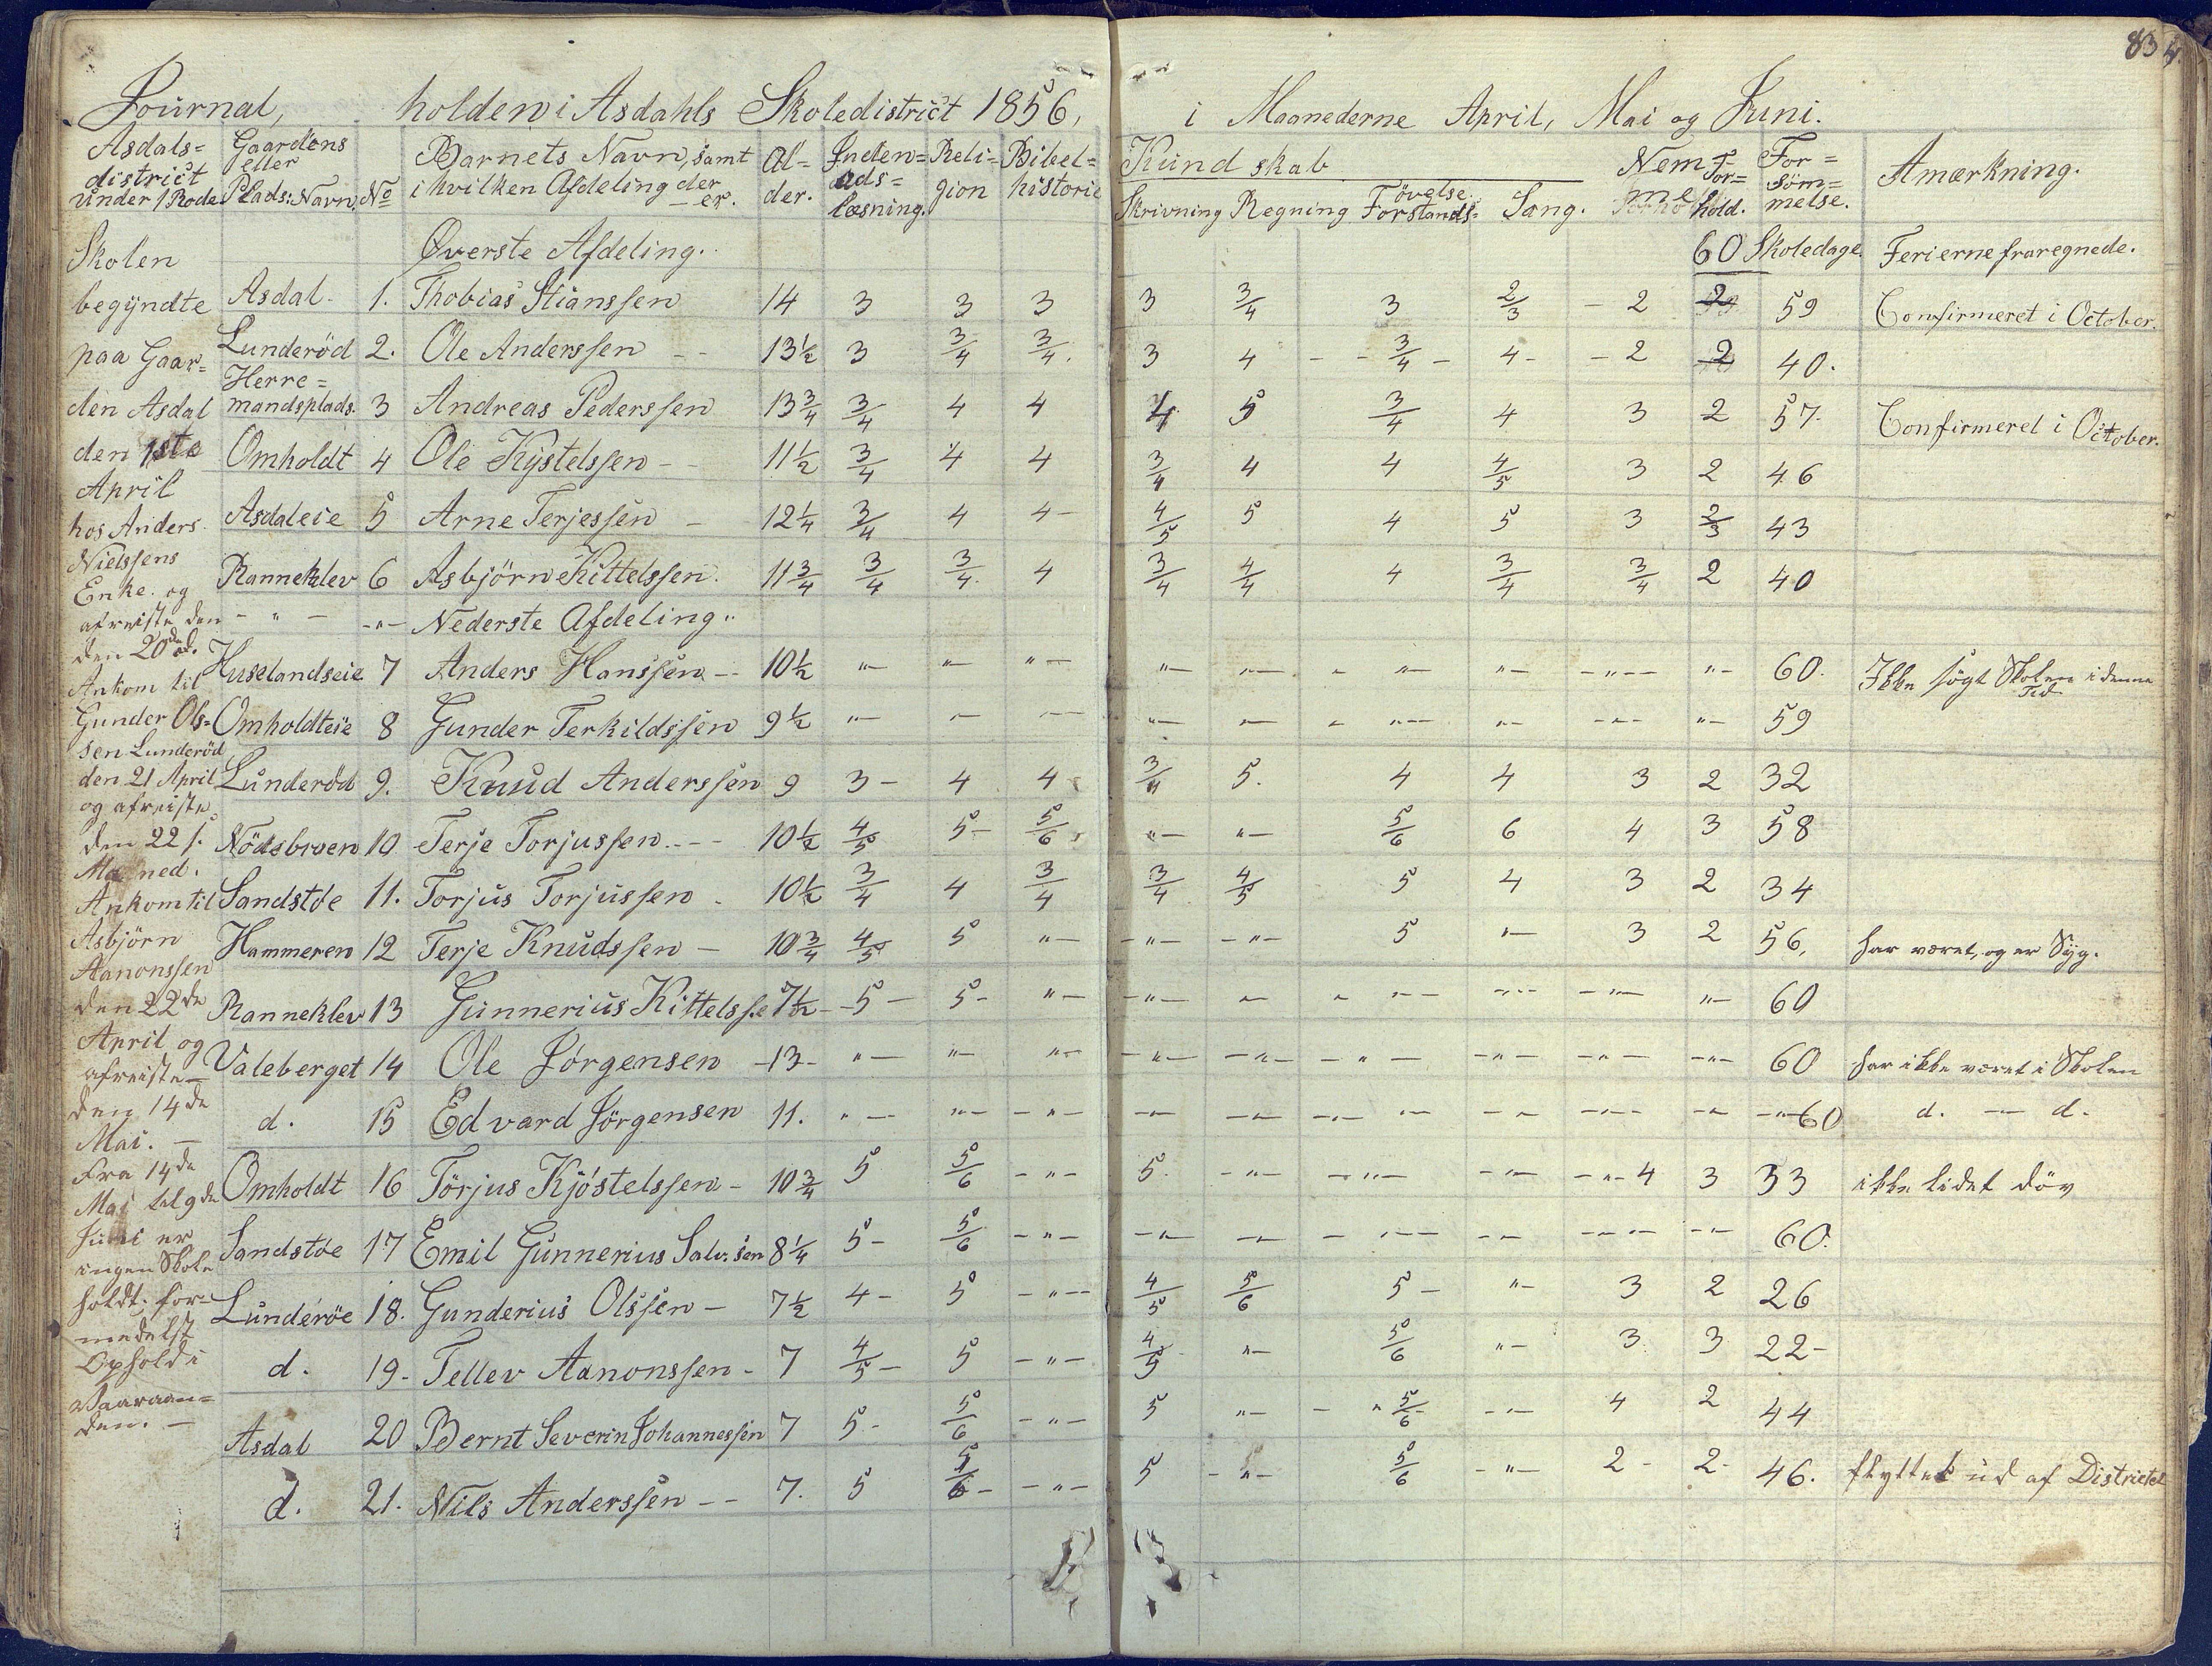 83
Journal, holden i Asdahls Skoledistrict 1856, i Maanederne April, Mai og Juni.
Asdals= district under 1 Rode | Gaardens eller Plads: Navn. | No | Barnets Navn, samt i hvilken Afdeling der er. | Al= der. | Inden= ads= læsning. | Reli= gion | Bibel= historie | Kundskab Skrivning | Regning | Forstands= øvelse | Sang. | Nemme | For= hold. | For= söm= melse. | Amærkning.
Øverste Afdeling. 60 Skoledage. Ferierne fraregnede.
Asdal - 1. Thobias Stianssen 14 3 3 3 3 3/4 3 2/3 - 2 2 59 Confirmeret i October.
Lunderöd 2. Ole Anderssen - - 13 1/2 3 3/4 3/4. 3 4 - - 3/4 - 4 - - 2 2 40.
Herre= mandsplads. 3 Andreas Pederssen 13 3/4 3/4 4 4 4 5 3/4 4 3 2 57. Confirmeret i October.
Omholdt 4 Ole Kystelssen - - 11 1/2 3/4 4 4 3/4 4 4 4/5 3 2 46
Asdaleie 5 Arne Terjessen - 12 1/4 3/4 4 4 - 4/5 5 4 5 3 2/3 43
Ranneklev 6 Asbjörn Kittelssen. 11 3/4 3/4 3/4. 4 3/4 4/4 4 3/4 3/4 2 40
- " - -"- Nederste Afdeling"
Huselandseie 7 Anders Hanssen - - 10 1/2 "- "- "- "- "- - "- "- -"- "- 60. Ikke søgt Skolen i denne Tid
Omholdteie 8 Gunder Terkildssen 9 1/2 "- "- "- "- "- - "- "- -"- "- 59
Lunderöd 9. Knud Anderssen 9 3 - 4 4 3/4 5. 4 4 3 2 32
Nödsbroen 10 Terje Torjussen - - - 10 1/2 4/5 5 - 5/6 "- "- 5/6 6 4 3 58
Sandstöe 11. Torjus Torjussen - 10 1/2 3/4 4 3/4 3/4 4/5 5 4 3 2 34
Hammeren 12 Terje Knudssen - 10 3/4 4/5 5 "- -"- -"- 5 "- 3 2 56, har været, og er Syg.
Ranneklev 13 Gunnerius Kittelsse 7 1/2 - 5 - 5 - "- -"- "- - "- -"- -"- "- 60
Valeberget 14 Ole Jörgensen -13- "- "- "- -"- -"- -"- -"- -"- -"- 60 har ikke været i Skolen
d. 15 Edvard Jörgensen 11. "- "- -"- -"- -"- -"- -"- -"- -"- -"- 60 d. - d.
Omholdt 16 Törjus Kjöstelssen - 10 3/4 5 5/6 -"- 5. -"- -"- -"- -"- 4 3 33 ikke lidet döv
Sandstöe 17 Emil Gunnerius Salv:sen 8 1/4 5 - 5/6 -"- -"- -"- -"- -"- -"- -"- 60.
Lunderöe 18. Gunderius Olssen - 7 1/2 4 - 5 -"- 4/5 5/6 5 - "- 3 2 26
d. 19 - Tellev Aanonssen - 7 4/5 - 5 -"- 4/5 "- 5/6 "- 3 3 22 -
Asdal 20 Bernt Severin Johannessen 7 5 - 5/6 -"- 5 "- - " 5/6 -"- 4 2 44
d. 21. Nils Anderssen - - 7. 5 5/6 - -"- 5 -"- 5/6 -"- 2 - 2 - 46. flyttet ud af Districtet
Skolen
begyndte
paa Gaar=
den Asdal
den 1ste
April
hos Anders
Nielssens
Enke. og
afreiste den
den 20de d.
Ankom til
Gunder Ols=
sen Lunderöd
den 21 April
og afreiste
den 22 s.
Maaned.
Ankom til
Asbjörn
Aanonssen
den 22de
April og
afreiste -
den 14de
Mai. -
Fra 14de
Mai til 9de
Juni er
ingen Skole
holdt. for=
medelst
Ophold i
Vaaraan=
den. -